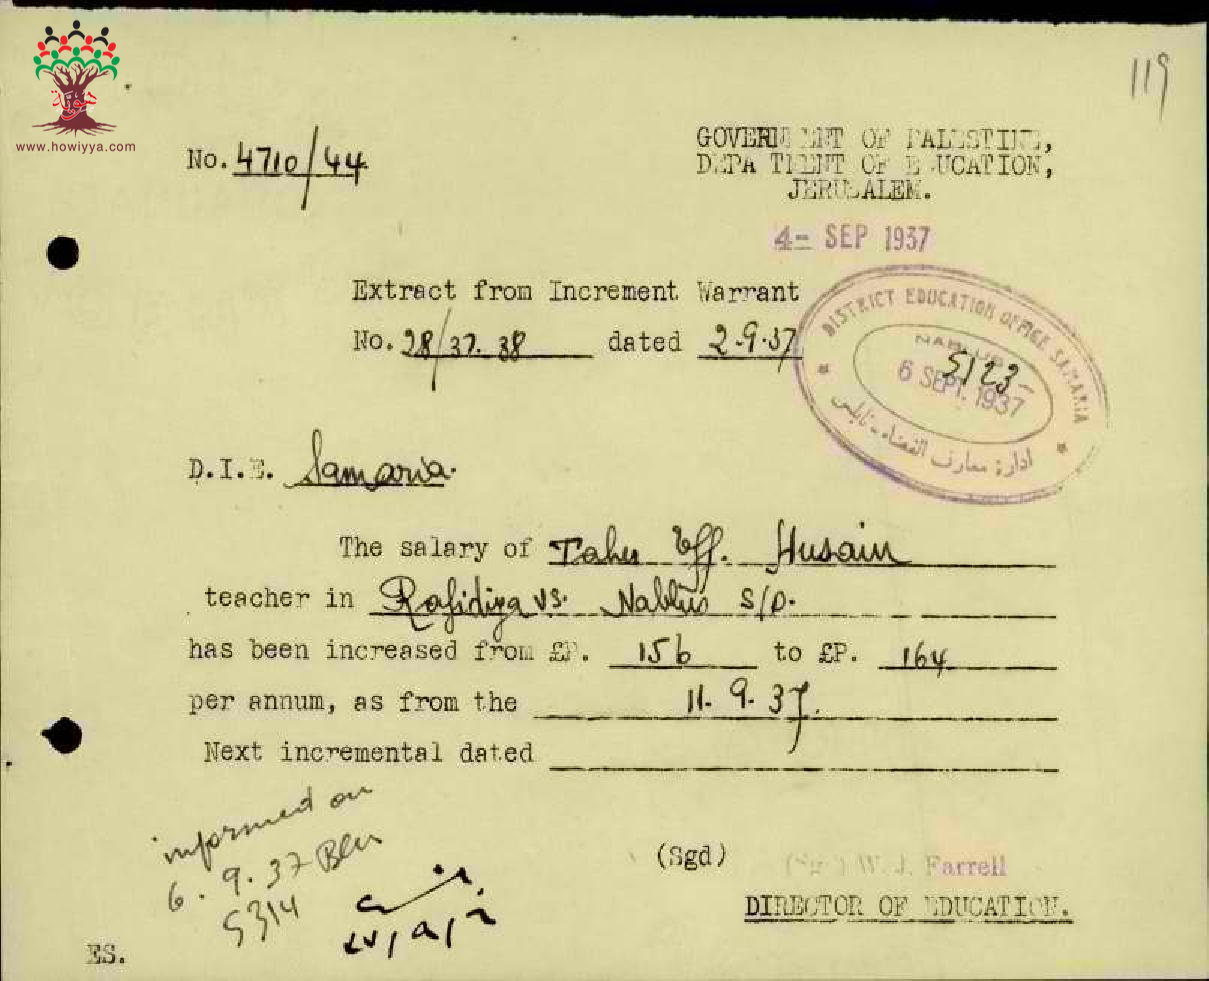 119
حويّة
www.howiyya.com
No. 4710/44
GOVERNMENT OF PALESTINE,
DEPARTMENT OF EDUCATION,
JERUSALEM.
4- SEP 1937
Extract from Increment Warrant
No. 28/37.38 dated 2.9.37
DISTRICT EDUCATION OFFICE SAMARIA
NABLUS
5123-
6 SEPT. 1937
ادارة معارف القضاء - نابلس
D.I.E. Samaria.
The salary of Taher Eff. Husain
teacher in Rafidiya vs. Nablus S/D.
has been increased from £P. 156 to £P. 164
per annum, as from the 11.9.37.
Next incremental dated
informed on
6.9.37
5314
(Sgd) (Sgd) W. J. Farrell
DIRECTOR OF EDUCATION.
ES.